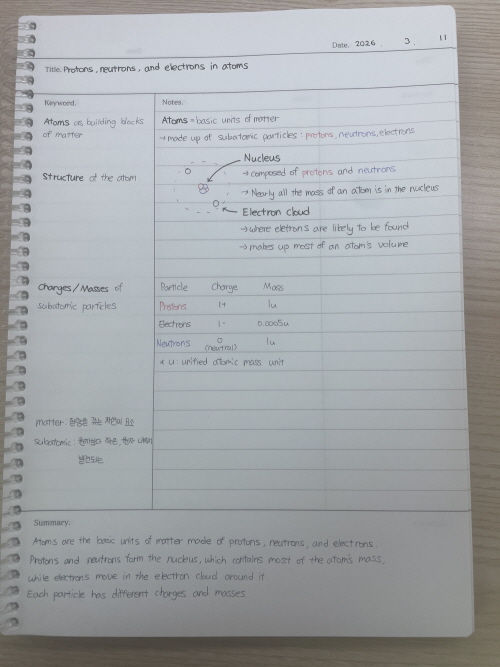 Date. 2026 . 3 . 11
Title. Protons, neutrons, and electrons in atoms
Keyword. Notes.
Atoms as building blocks of matter
Atoms = basic units of matter
→ made up of subatomic particles : protons, neutrons, electrons
Structure of the atom
Nucleus
→ composed of protons and neutrons
→ Nearly all the mass of an atom is in the nucleus
Electron cloud
→ where eletrons are likely to be found
→ makes up most of an atom's volume
Charges/Masses of
subatomic particles
Particle Charge Mass
Protons 1+ 1u
Electrons 1- 0.0005u
Neutrons 0 (neutral) 1u
* u : unified atomic mass unit
matter : 갖는 자연의 요소
subatomic : 원자보다 작은, 원자 내에서
발견되는
Summary.
Atoms are the basic units of matter made of protons, neutrons, and electrons.
Protons and neutrons form the nucleus, which contains most of the atom's mass,
while electrons move in the electron cloud around it.
Each particle has different charges and masses